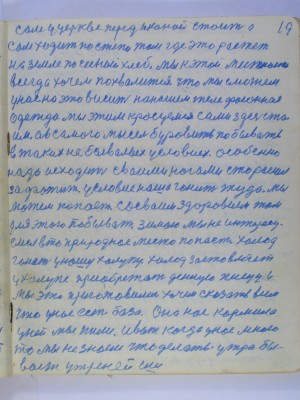 19
сам у церкве перед иконой стоит а
сам ходит по степи там где это растет
на земле посевный хлеб. мы к этой местности
всегда хочем похвалится что мы сможем
у нас на это висит на нашем теле
одежда мы этим красуемся сами здесь
им. а в самого мысел буровит побывать
в таких небывалых условиях. особенно
надо исходит своими ногами сторони
условие наше гонит туда. мы
можем попасть со своим здоровьем там
для этого побывать. зимою мы не интересу-
емся в это природное место попасть. холод
гонит у нашу халупу холод заставляет
у халупе приобретать данную жизню
мы это приготовили хочем сказать всем
что у нас есть база. Она нас кормила
у ней мы жили. и вот когда у нас много
то мы не знаем что делать. утра бы-
вают утреней